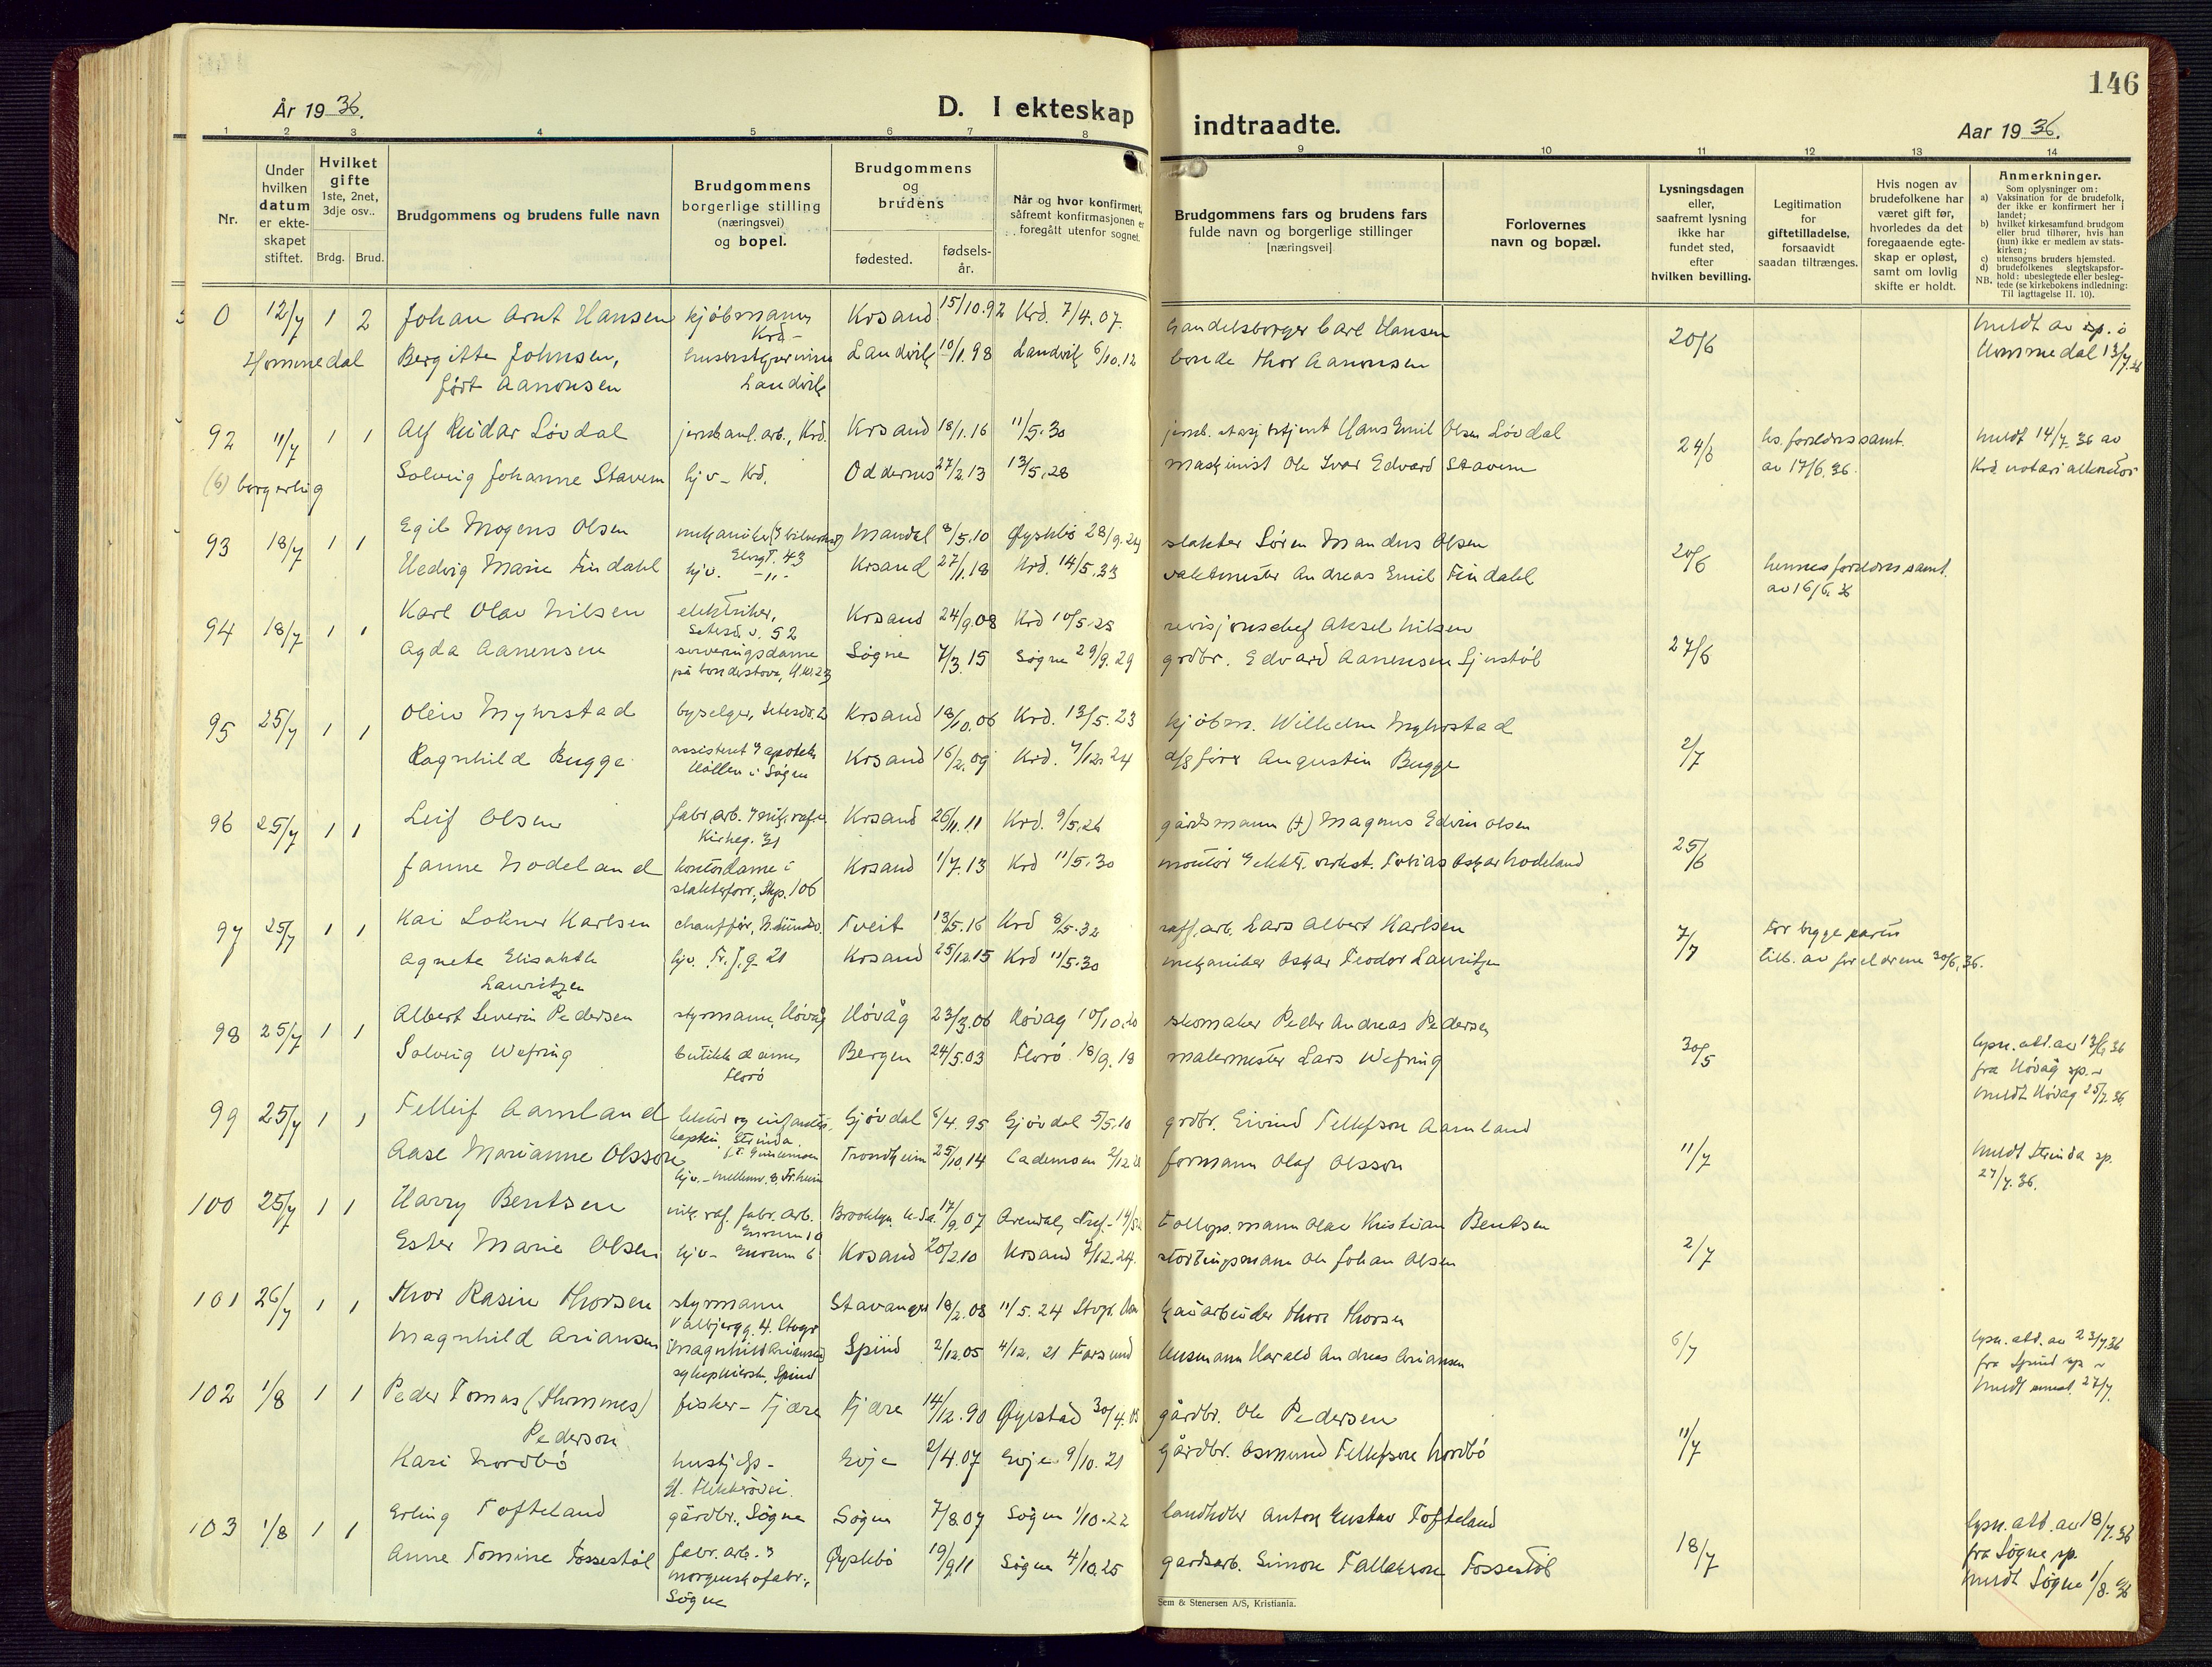 146
År 1936.
D. I ekteskap indtraadte.
Aar 1936.
1 2 3 4 5 6 7 8 9 10 11 12 13 14
Nr.
Under hvilken datum er ekteskapet stiftet.
Hvilket gifte 1ste, 2net, 3dje osv..
Brdg. Brud.
Brudgommens og brudens fulle navn
Brudgommens borgerlige stilling (næringsvei) og bopel.
Brudgommens og brudens
fødested.
fødselsår.
Når og hvor konfirmert, såfremt konfirmasjonen er foregått utenfor sognet.
Brudgommens fars og brudens fars fulde navn og borgerlige stillinger [næringsvei]
Forlovernes navn og bopæl.
Lysningsdagen eller, saafremt lysning ikke har fundet sted, efter hvilken bevilling.
Legitimation for giftetilladelse, forsaavidt saadan tiltrænges.
Hvis nogen av brudefolkene har været gift før, hvorledes da det foregaaende egteskap er opløst, samt om lovlig skifte er holdt.
Anmerkninger.
Som oplysninger om:
a) Vaksination for de brudefolk, der ikke er konfirmert her i landet;
b) hvilket kirkesamfund brudgom eller brud tilhører, hvis han (hun) ikke er medlem av statskirken;
c) utensogns bruders hjemsted.
d) brudefolkenes slegtskapsforhold: ubeslegtede eller beslegtede (se kirkebokens indledning: Til iagttagelse II. 10).
NB.
0 12/7 1 2 Johan Arnt Hansen kjøbmann Krd- Krsand 15/10.92 Krd. 7/4.07. handelsborger Carl Hansen 20/6 meldt av sp. i
Hommedal Bergitte Johnsen, født Aanonsen husbestyrerinne Landvik Landvik 10/1.98 Landvik 6/10.12 bonde Thor Aanonsen Hommedal 13/7.36
92 11/7 1 1 Alf Reidar Løvdal jernb.anl.arb., Krd. Krsand 18/1.16 11/5.30 Hans Emil Olsen Løvdal 24/6 hs. foreldres samt. meldt 14/7.36 av
(6) borgerlig Solveig Johanne Stavem hjv- Krd. Oddernes 27/2.13 13/5.28 maskinist Ole Ivar Edvard Stavem av 17/6.36. Krd. notarialkontor
93 18/7 1 1 Egil Mogens Olsen Elvegt. 43 Mandal 8/5.10 Øyslebø 28/9.24 slakter Søren Mandus Olsen 20/6
Hedvig Marie Findahl hjv. -"- Krsand 27/1.18 Krd. 14/5.33 vaktmester Andreas Emil Findahl hennes foreldres samt. av 16/6.36
94 18/7 1 1 Karl Olav Nilsen elektriker, Setesd.v. 52 Krsand 24/9.08 Krd 10/5.25 revisjonschef Aksel Nilsen
Agda Aanensen serveringsdame på bondestova, Søgne 7/3.15 Søgne 29/9.29 grdbr. Edvard Aanensen 27/6
95 25/7 1 1 Olein Myhrstad byselger, Krsand 18/10.06 Krd. 13/5.23 kjøbm. Wilhelm Myhrstad
Ragnhild Bugge assistent apotek Høllen i Søgne Krsand 16/2.09 Krd. 7/12.24 Augustin Bugge 2/7
96 25/7 1 1 Leif Olsen fabr.arb. Kirkeg. 31 Krsand 26/11.11 Krd. 9/5.26 gårdsmann (+) Magnus Edvin Olsen
Janne Nodeland kontordame i slakterforr., Skp. 106 Krsand 1/7.13 Krd 11/5.30 montør Tobias Oskar Nodeland 25/6
97 25/7 1 1 Kai Lokner Karlsen chauffør, Tveit 13/5.16 Krd 8/5.32 raff.arb. Lars Albert Karlsen For begge parter
Agnete Elisabeth Lauritzen hjv. Krsand 25/12.15 Krd 11/5.30 mekaniker Oskar Teodor Lauritzen 7/7 till. av foreldrene 30/6.36.
98 25/7 1 1 Albert Severin Pedersen styrmann, Høvåg Høvåg 23/3.06 Høvåg 10/10.20 skomaker Peder Andreas Pedersen
Solveig Wefring butikkdame Florø Bergen 24/5.03 Florø 18/9.18 malermester Lars Wefring 30/5 lysn.att. av 13/6.36 fra Høvåg sp. - meldt Høvåg 25/7.36.
99 25/7 1 1 Telleif Aamland lektor og infanteri- kaptein, Strinda. Gjøvdal 6/4.95 Gjøvdal 5/5.10 grdbr. Eivind Tellefsen Aamland
Aase Marianne Olsson hjv. - Trondheim 25/10.14 formann Olaf Olsson 11/7 meldt Strinda sp. 27/7.36.
100 25/7 1 1 Harry Bentsen nik. raf. fabr. arb. Brooklyn U.S.A. 17/9.07 Arendal, Olav Kristian Bentsen
Ester Marie Olsen hjv- Krsand 20/2.10 Krsand 7/12.24. stortingsmann Ole Johan Olsen 2/7
101 26/7 1 1 Thor Rasin Thorsen styrmann Valbjergg. 4. Stvgr Stavanger 18/2.08 11/5.24 Thore Thorsen
Magnhild Ariansen Magnhild Ariansen Spind Spind 2/12.05 4/12.21 Farsund husmann Harald Andreas Ariansen 6/7 lysn. att. av 23/7.36 fra Spind sp - meldt 27/7.
102 1/8 1 1 Peder Tomas (Thommes) Pedersen fisker - Fjære Fjære 14/12.90 Øyestad 30/4.05 gårdbr. Ole Pedersen
Kari Nordbø hushj. Evje 2/4.07 Evje 9/10.21 gårdbr. Osmund Tellefsen Nordbø 11/7
103 1/8 1 1 Erling Tofteland gårdbr., Søgne Søgne 7/8.07 Søgne 1/10.22 landhdlr Anton Gustav Tofteland
Anne Tomine Fossestøl fabr. arb. Søgne Øyslebø 19/9.11 Søgne 4/10.25 gardsarb. Simon Tallaksen Fossestøl 18/7 lysn. att. av 18/7.36 fra Søgne sp. meldt Søgne 1/8.36
Sem & Stenersen A/S, Kristiania.